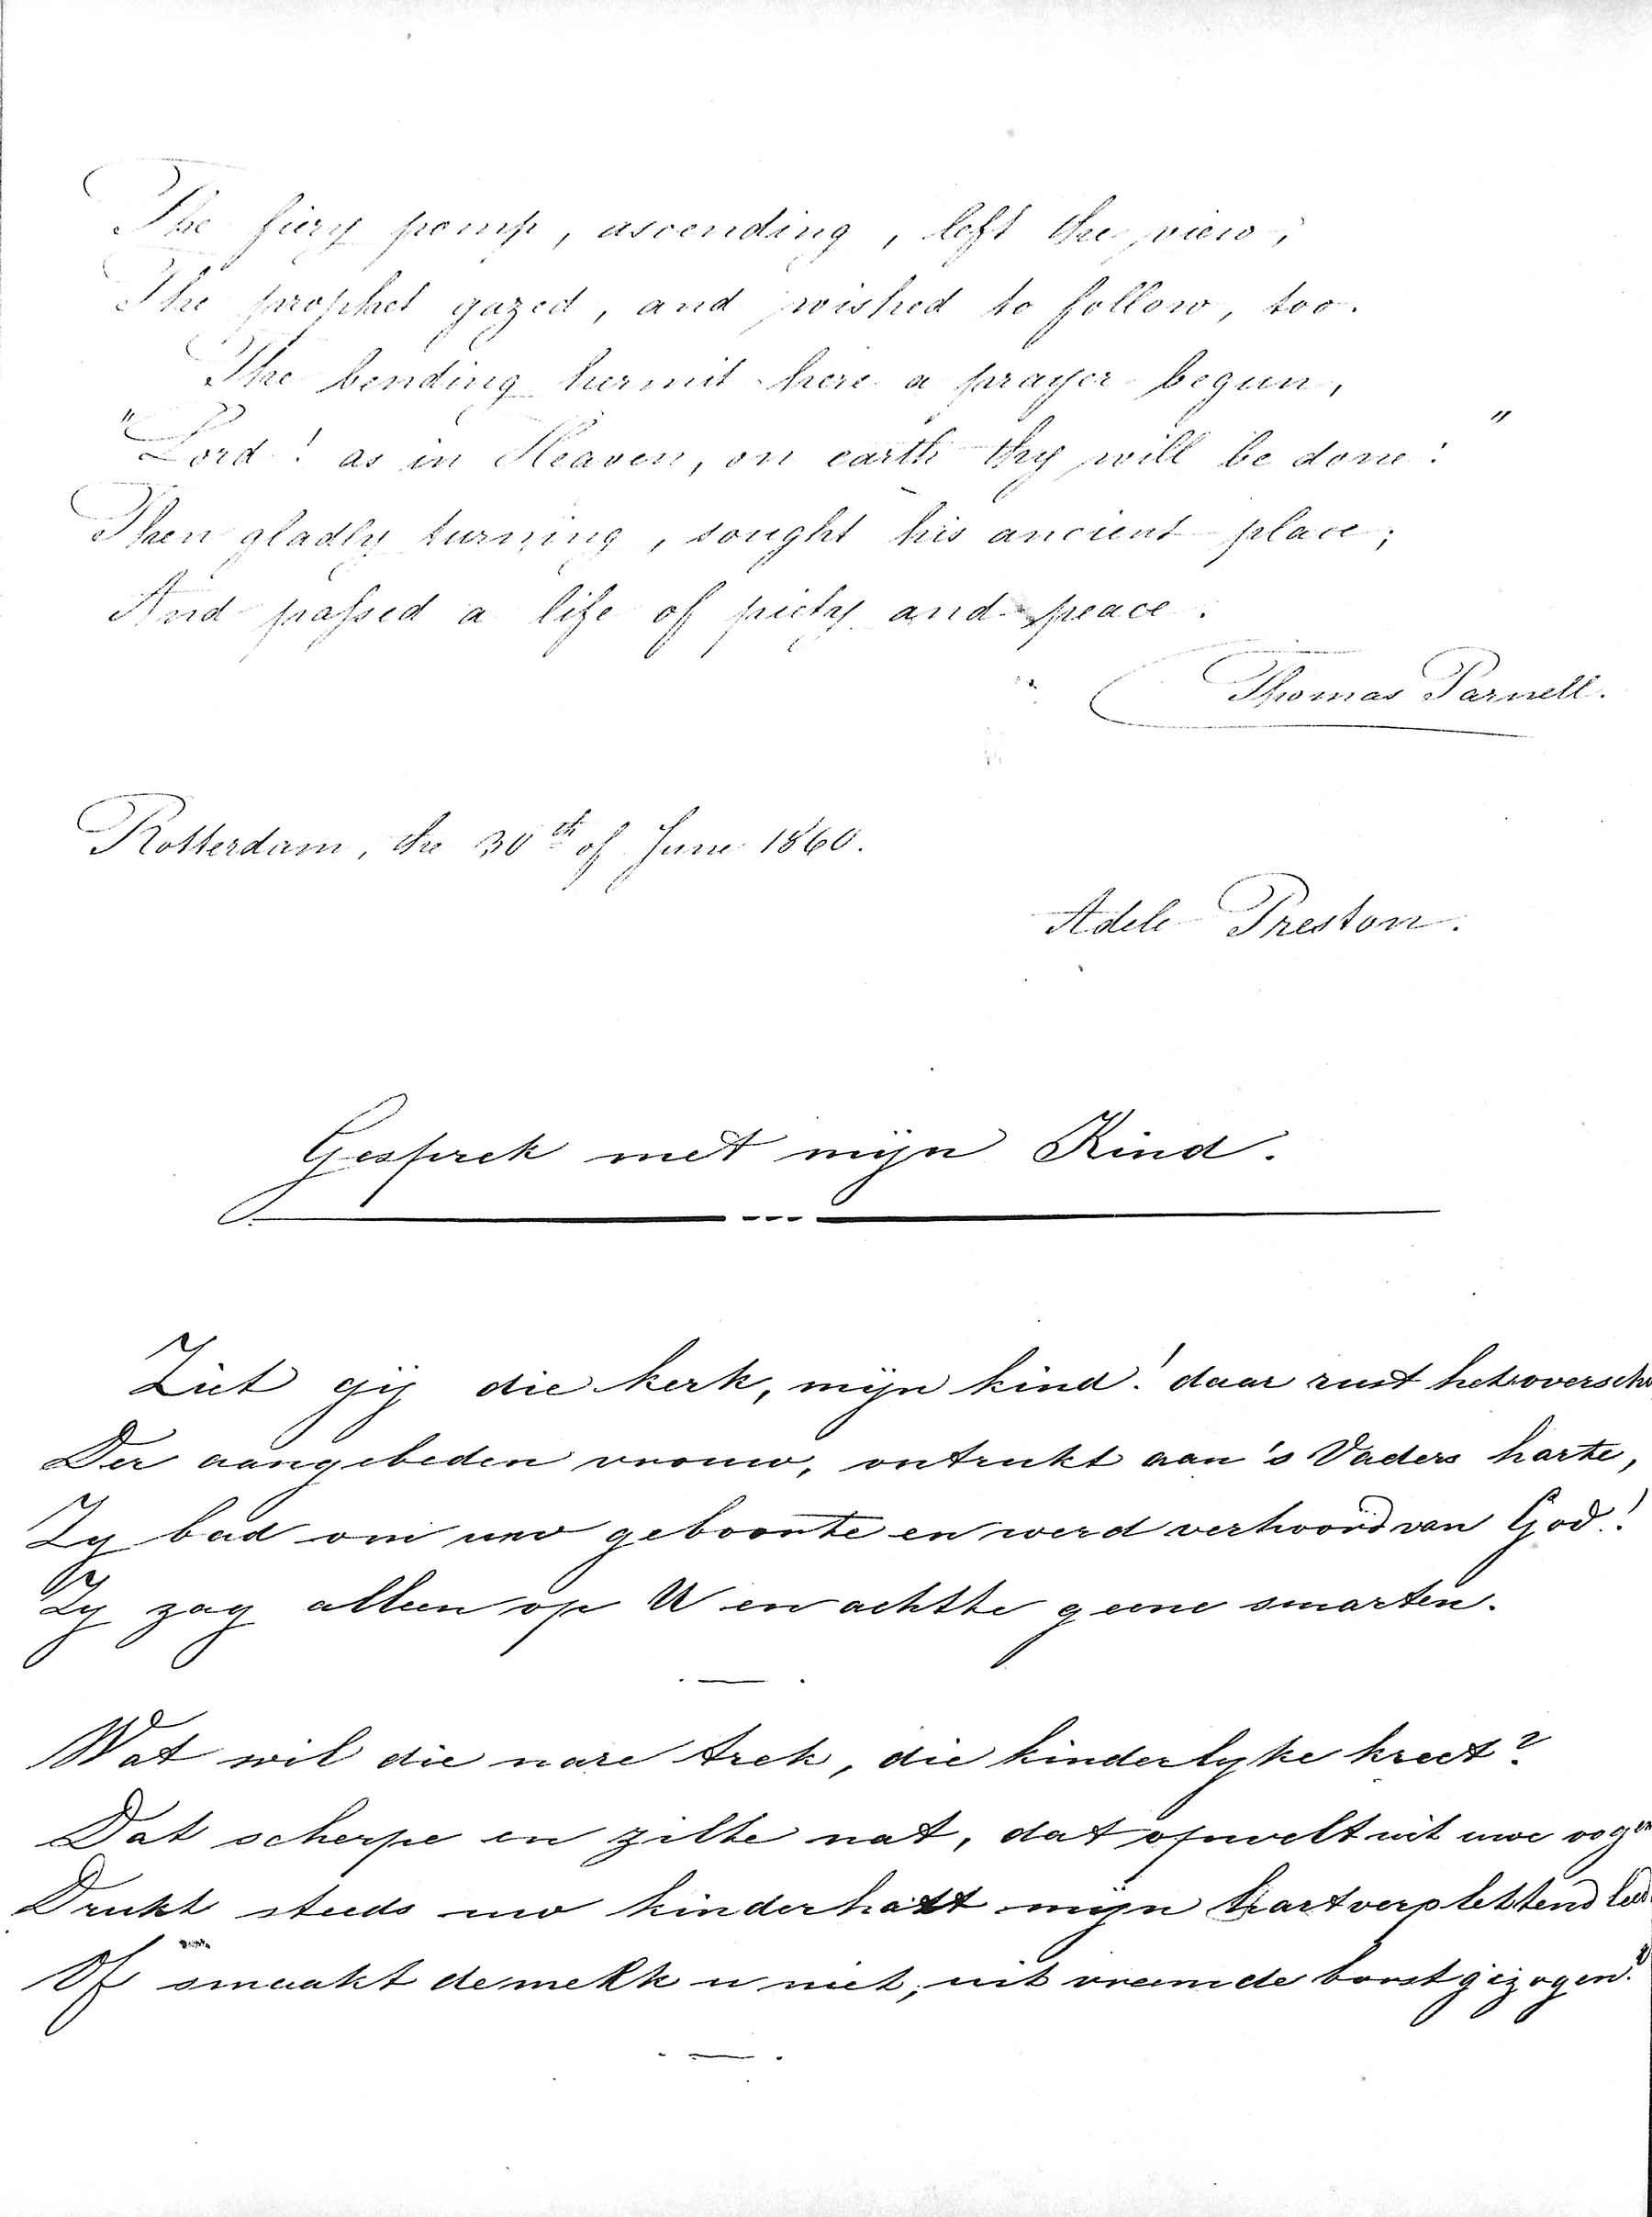 The fiery pomp, ascending, left the view;
The prophet gazed, and wished to follow, too.
The bending hermit here a prayer begun,
"Lord! as in Heaven, on earth thy will be done:"
Then gladly turning, sought his ancient place;
And passed a life of piety and peace.
Thomas Parnell.
Rotterdam, the 30th of June 1860.
Adele Preston.
Gesprek met mijn Kind.
Ziet gij die kerk, mijn kind! daar rust het oversch
Der aangebeden vrouw, ontrukt aan 's Vaders harte,
Zy bad om uw geboorte en werd verhoord van God!
Zy zag alleen op U en achtte geene smarten.
Wat wil die nare trek, die kinderlyke kreet?
Dat scherpe en zilte nat, dat opwelt uit uwe oogen
Drukt steeds uw kinderhart mijn hartverplettend leed
Of smaakt de melk u niet, uit vreemde borst gezogen?